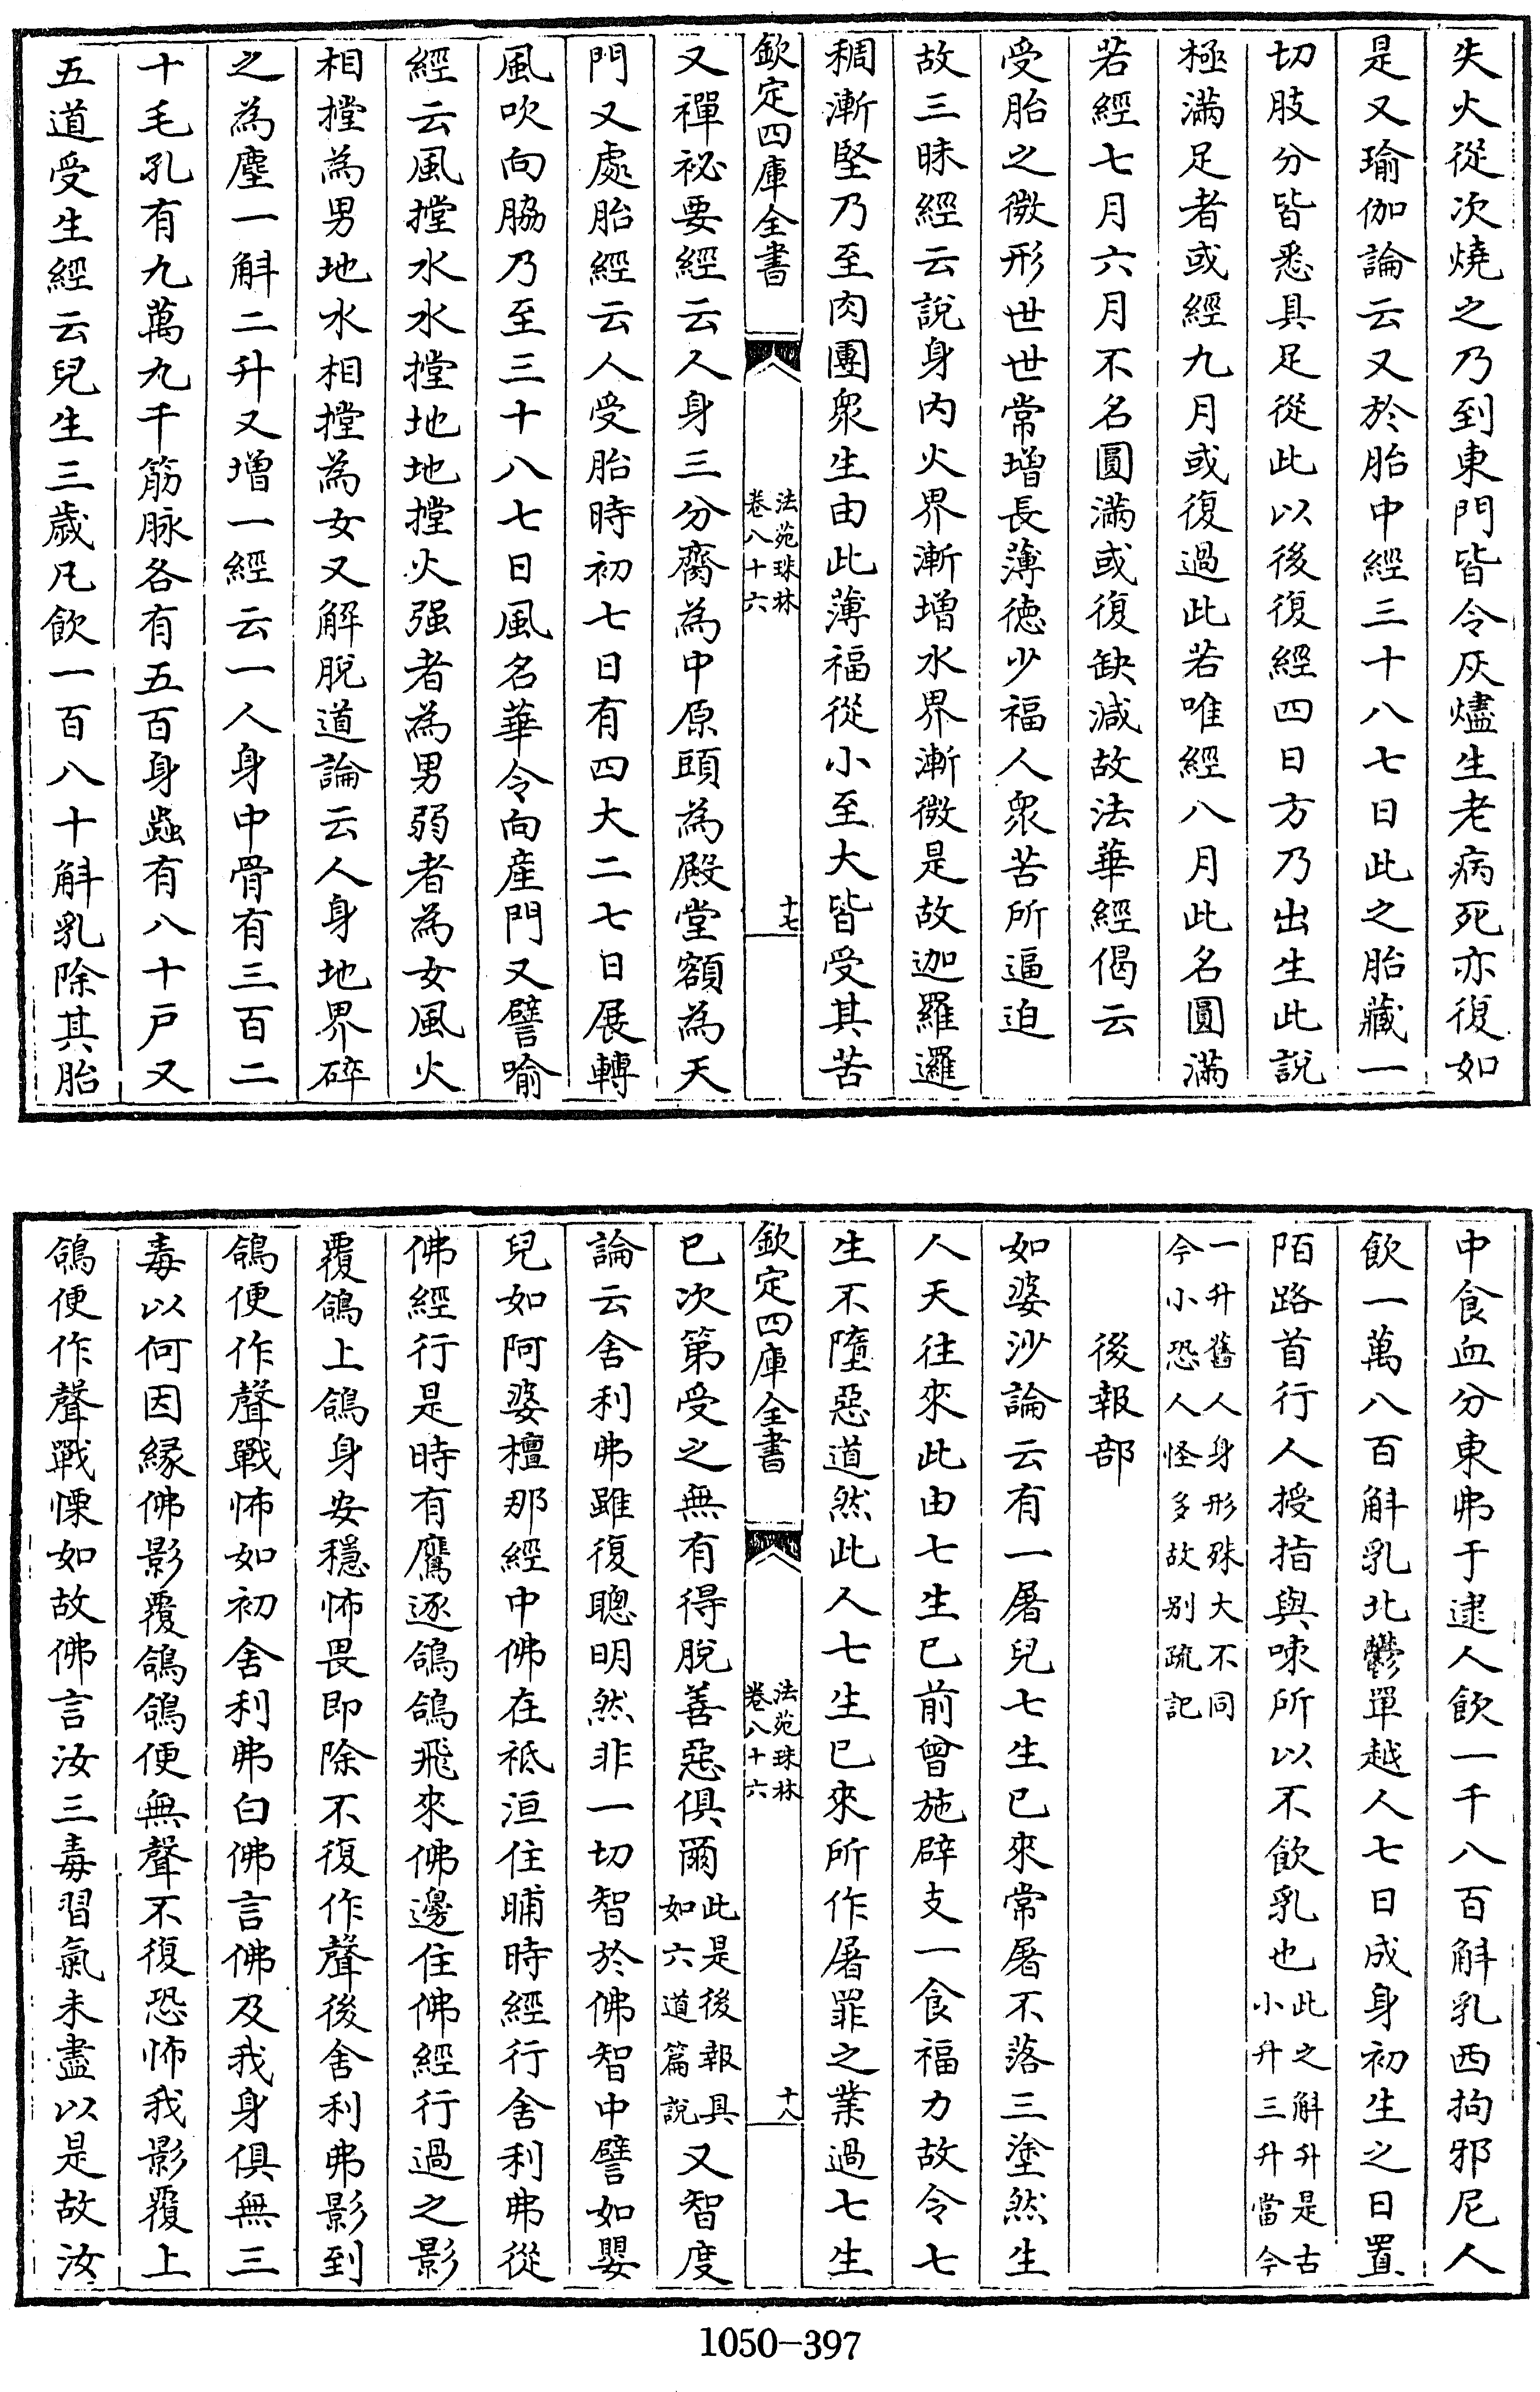 失火從次燒之乃到東門皆令灰燼生老病死亦復如
是又瑜伽論云又於胎中經三十八七日此之胎藏一
切肢分皆悉具足從此以後復經四日方乃出生此說
極滿足者或經九月或復過此若唯經八月此名圓滿
若經七月六月不名圓滿或復缺減故法華經偈云
受胎之微形世世常增長薄德少福人衆苦所逼迫
故三昧經云說身内火界漸增水界漸微是故迦羅邏
稠漸堅乃至肉團衆生由此薄福從小至大皆受其苦
欽定四庫全書
法苑珠林
卷八十六
十七
又禪祕要經云人身三分齊為中原頭為殿堂額為天
門又處胎經云人受胎時初七日有四大二七日展轉
風吹向脇乃至三十八七日風名華令向産門又譬喻
經云風摚水水摚地地摚火强者為男弱者為女風火
相摚為男地水相摚為女又解脫道論云人身地界碎
之為塵一斛二升又增一經云一人身中骨有三百二
十毛孔有九萬九千筋脉各有五百身蟲有八十戸又
五道受生經云兒生三歲凡飲一百八十斛乳除其胎
中食血分東弗于逮人飲一千八百斛乳西拘邪尼人
飲一萬八百斛乳北鬱單越人七日成身初生之日置
陌路首行人授指與㖩所以不飲乳也此之斛升是古
小升三升當今
一升舊人人身形殊大不同
今小恐人怪多故别疏記
後報部
如婆沙論云有一屠兒七生已來常屠不落三塗然生
人天往來此由七生已前曾施辟支一食福力故令七
生不墮惡道然此人七生已來所作屠罪之業過七生
欽定四庫全書
法苑珠林
卷八十六
十八
已次第受之無有得脫善惡俱爾此是後報具
如六道篇說又智度
論云舍利弗雖復聰明然非一切智於佛智中譬如嬰
兒如阿婆檀那經中佛在祇洹住晡時經行舍利弗從
佛經行是時有鷹逐鴿鴿飛來佛邊住佛經行過之影
覆鴿上鴿身安穩怖畏即除不復作聲後舍利弗影到
鴿便作聲戰怖如初舍利弗白佛言佛及我身俱無三
毒以何因緣佛影覆鴿鴿便無聲不復恐怖我影覆上
鴿便作聲戰慄如故佛言汝三毒習氣未盡以是故汝
1050-397